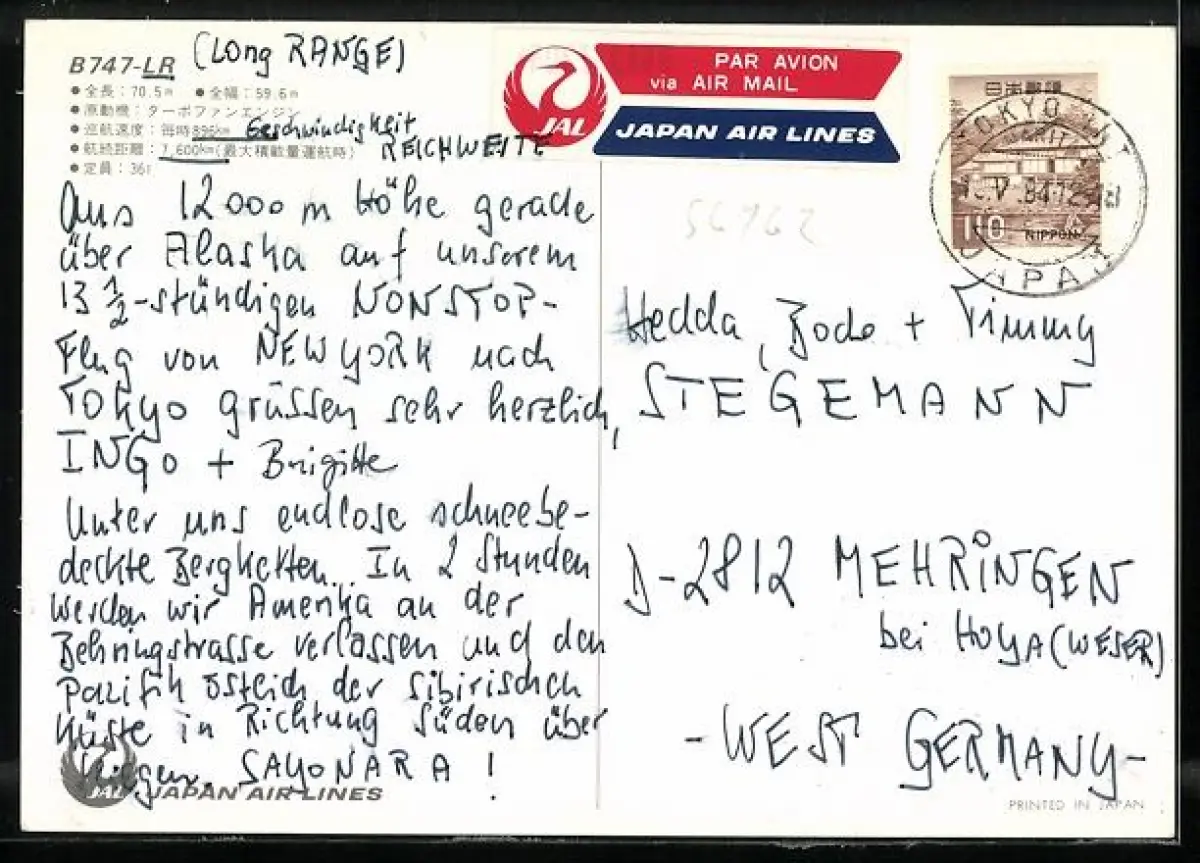 B747-LR (Long RANGE)
● 全長：70.5m ● 全幅：59.6m
● 原動機：ターボファンエンジン
● 巡航速度：毎時896km Geschwindigkeit
● 航続距離：7,600km(最大積載量運航時) REICHWEITE
● 定員：361
Aus 12000 m Höhe gerade
über Alaska auf unserem
13 1/2-stündigen NONSTOP-
Flug von NEW YORK nach
Tokyo grüssen sehr herzlich,
INGO + Brigitte
Unter uns endlose schneebe-
deckte Bergketten. In 2 Stunden
werden wir Amerika an der
Behringstrasse verlassen und den
Pazifik östlich der sibirischen
Küste in Richtung Süden über
fliegen. SAYONARA !
JAL JAPAN AIR LINES
JAL
PAR AVION
via AIR MAIL
JAPAN AIR LINES
日本郵便
110 NIPPON
TOKYO INT
V .84.12
JAPAN
56762
Hedda, Bodo + Timmy
STEGEMANN
D-2812 MEHRiNGEN
bei HOYA (WESER)
- WEST GERMANY -
PRINTED IN JAPAN